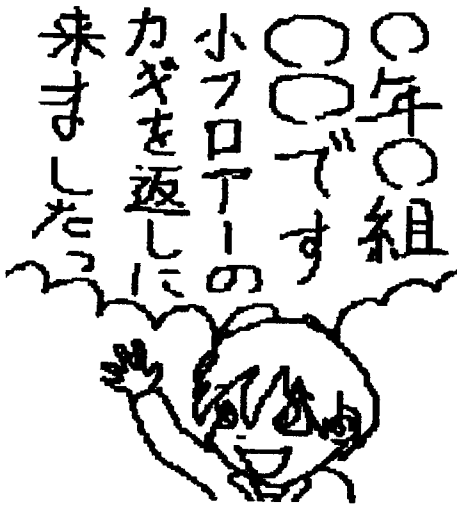 〇年〇組
〇〇です
小フロアーの
カギを返しに
来ましたっ